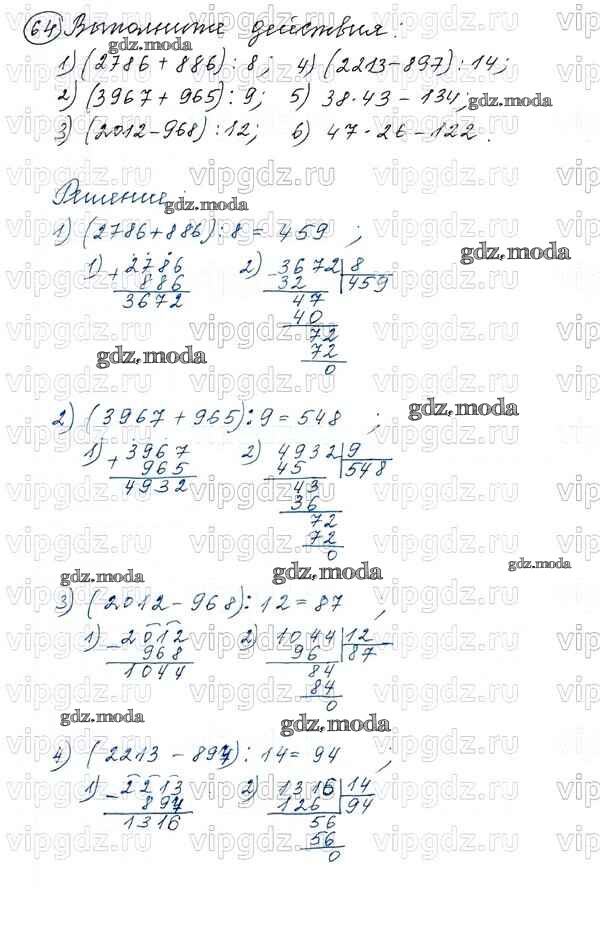 64 Выполните действия:
1) (2786 + 886) : 8; 4) (2213 - 897) : 14;
2) (3967 + 965) : 9; 5) 38 · 43 - 134;
3) (2012 - 968) : 12; 6) 47 · 26 - 122.
Решение:
1) (2786 + 886) : 8 = 459 ;
1) + 2786 2) - 3672 | 8
886 32 459
3672 47
40
72
72
0
2) (3967 + 965) : 9 = 548 ;
1) + 3967 2) 4932 | 9
965 45 548
4932 43
36
72
72
0
3) (2012 - 968) : 12 = 87 ;
1) - 2012 2) 1044 | 12
968 96 87
1044 84
84
0
4) (2213 - 897) : 14 = 94 ;
1) - 2213 2) 1316 | 14
897 126 94
1316 56
56
0
gdz.moda
vipgdz.ru